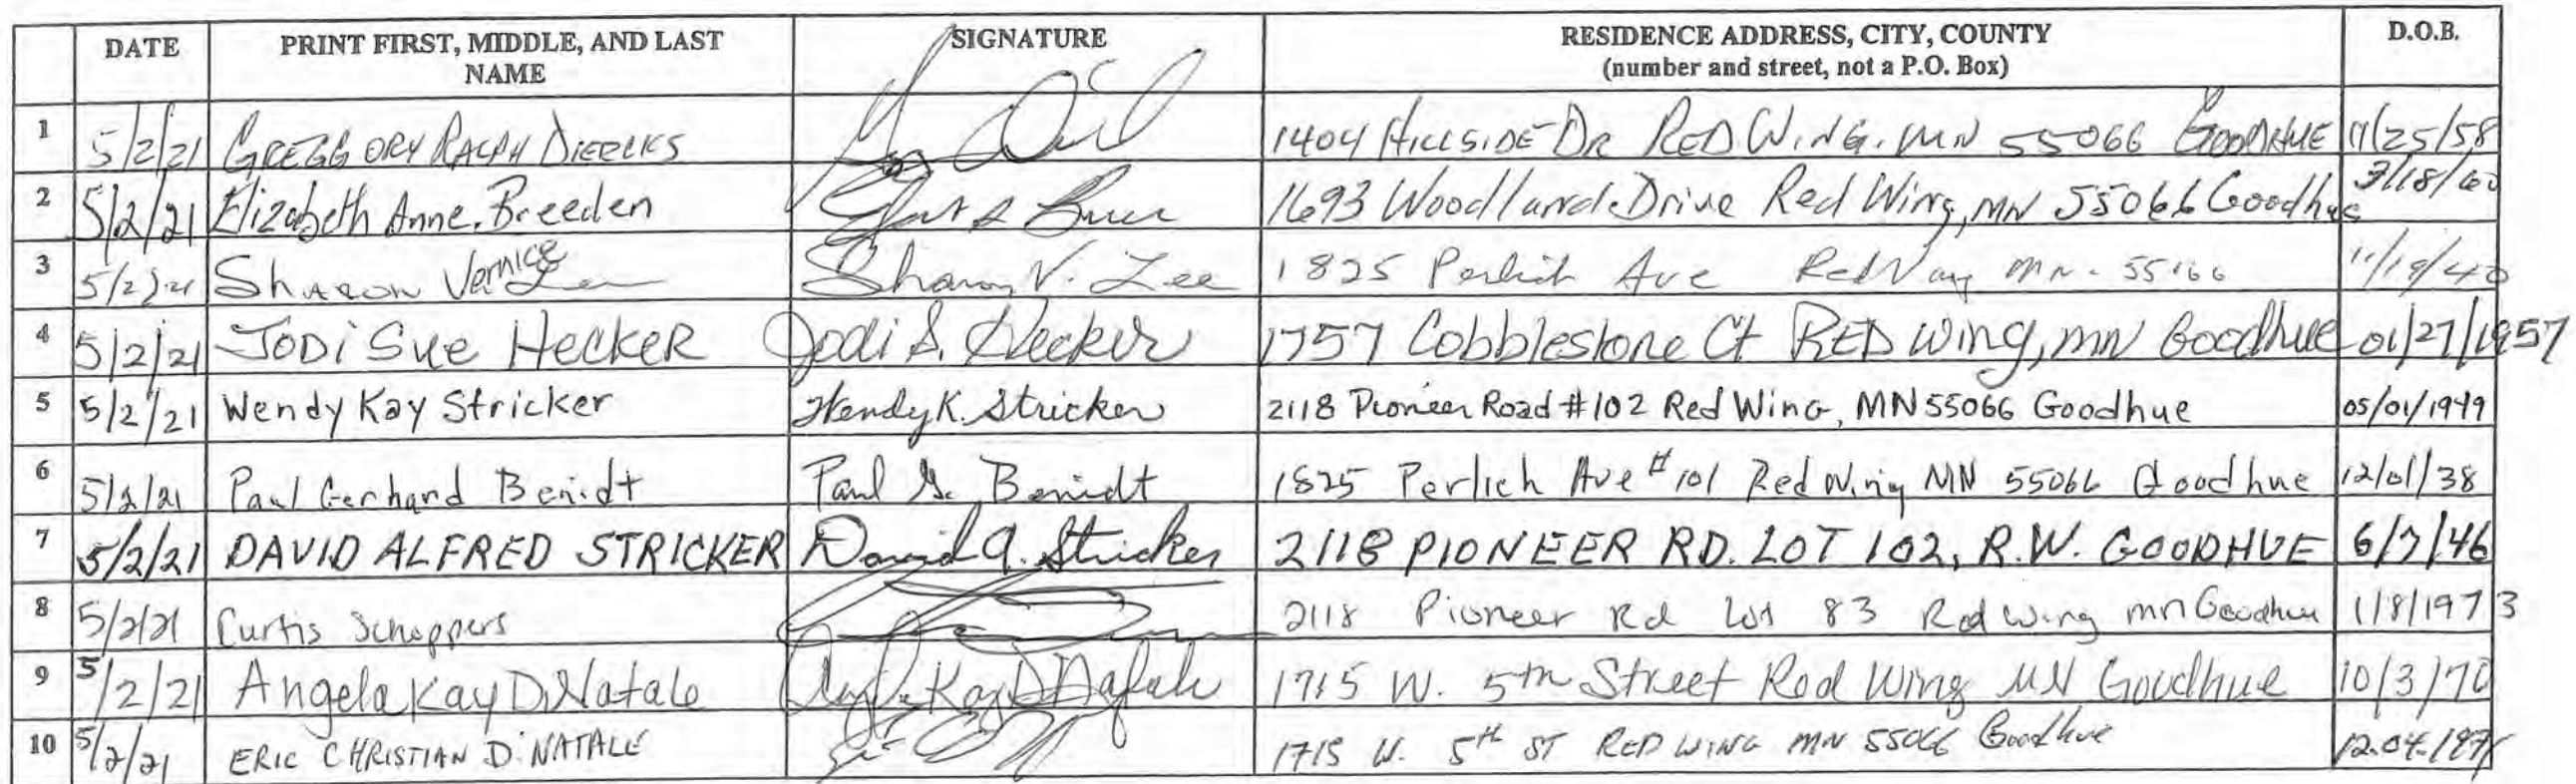 DATE PRINT FIRST, MIDDLE, AND LAST SIGNATURE RESIDENCE ADDRESS, CITY, COUNTY D.O.B.
NAME (number and street, not a P.O. Box)
1 5/2/21 GREGGORY RALPH DIERCKS 1404 HILLSIDE DR RED WING. MN 55066 GOODHUE 11/25/58
2 5/2/21 Elizabeth Anne Breeden 1693 Woodland Drive Red Wing, MN 55066 Goodhue 3/18/60
3 5/2/21 SHARON Vernice Lee Sharon V. Lee 1825 Perlich Ave Red Wing MN. 55066 11/19/40
4 5/2/21 JODi Sue HeckeR Jodi S. Hecker 1757 Cobblestone Ct RED Wing, mn Goodhue 01/27/1957
5 5/2/21 Wendy Kay Stricker Wendy K. Stricker 2118 Pioneer Road #102 Red Wing, MN 55066 Goodhue 05/01/1949
6 5/2/21 Paul Gerhand Benidt Paul G. Benidt 1825 Perlich Ave #101 Red Wing MN 55066 Goodhue 12/01/38
7 5/2/21 DAVID ALFRED STRICKER David A. Stricker 2118 PIONEER RD. LOT 102, R.W. GOODHUE 6/7/46
8 5/2/21 Curtis Schoppers 2118 Pioneer Rd Lot 83 Red Wing mn Goodhue 1/8/1973
9 5/2/21 Angela Kay DiNatale Angela Kay DiNatale 1715 W. 5th Street Red Wing MN Goodhue 10/3/70
10 5/2/21 ERIC CHRISTIAN DiNATALE 1715 W. 5th ST RED WING MN 55066 Goodhue